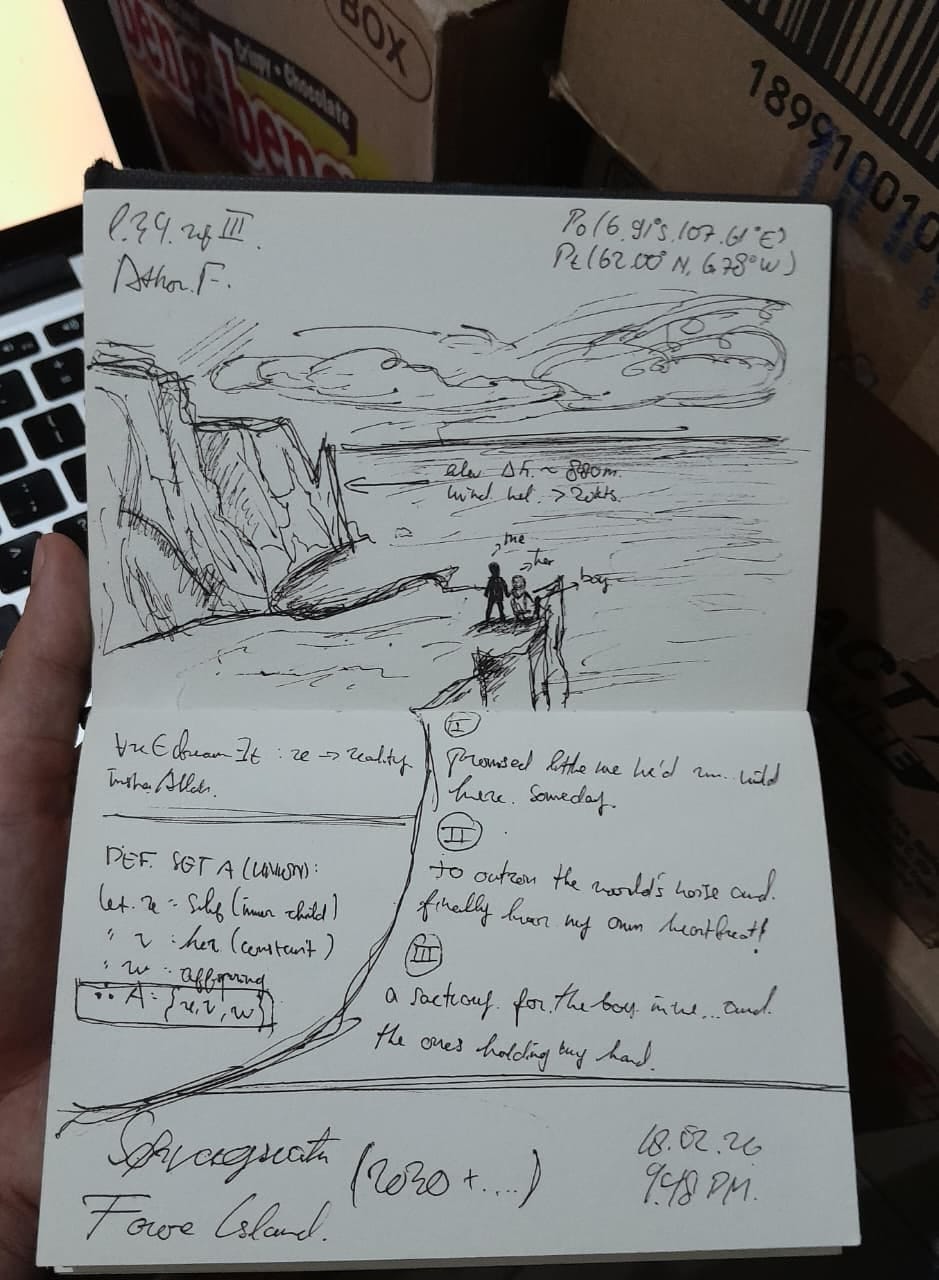 BOX
Crispy • Chocolate
beng-beng
189910010
ACT
P.39. III.
Athor. F.
Po (6.91°S, 107.61°E)
Pt (62.00° N, 6.78° W)
elev Δh ~ 880m.
wind vel. > 20kts.
me
her
boy
∀x ∈ dream ∃t : x → reality
Insha Allah.
DEF. SET A (UNION):
Let u = Self (inner child)
" v : her (constant)
" w : offspring
∴ A = {u, v, w}
I
promised little me he'd run wild
here. Someday.
II
to outrun the world's noise and
finally hear my own heartbeat!
III
a sactuary for the boy in me... and
the ones holding my hand.
Sørvágsvatn
(2030 + ....)
Faroe Island.
18.02.26
9:48 PM.